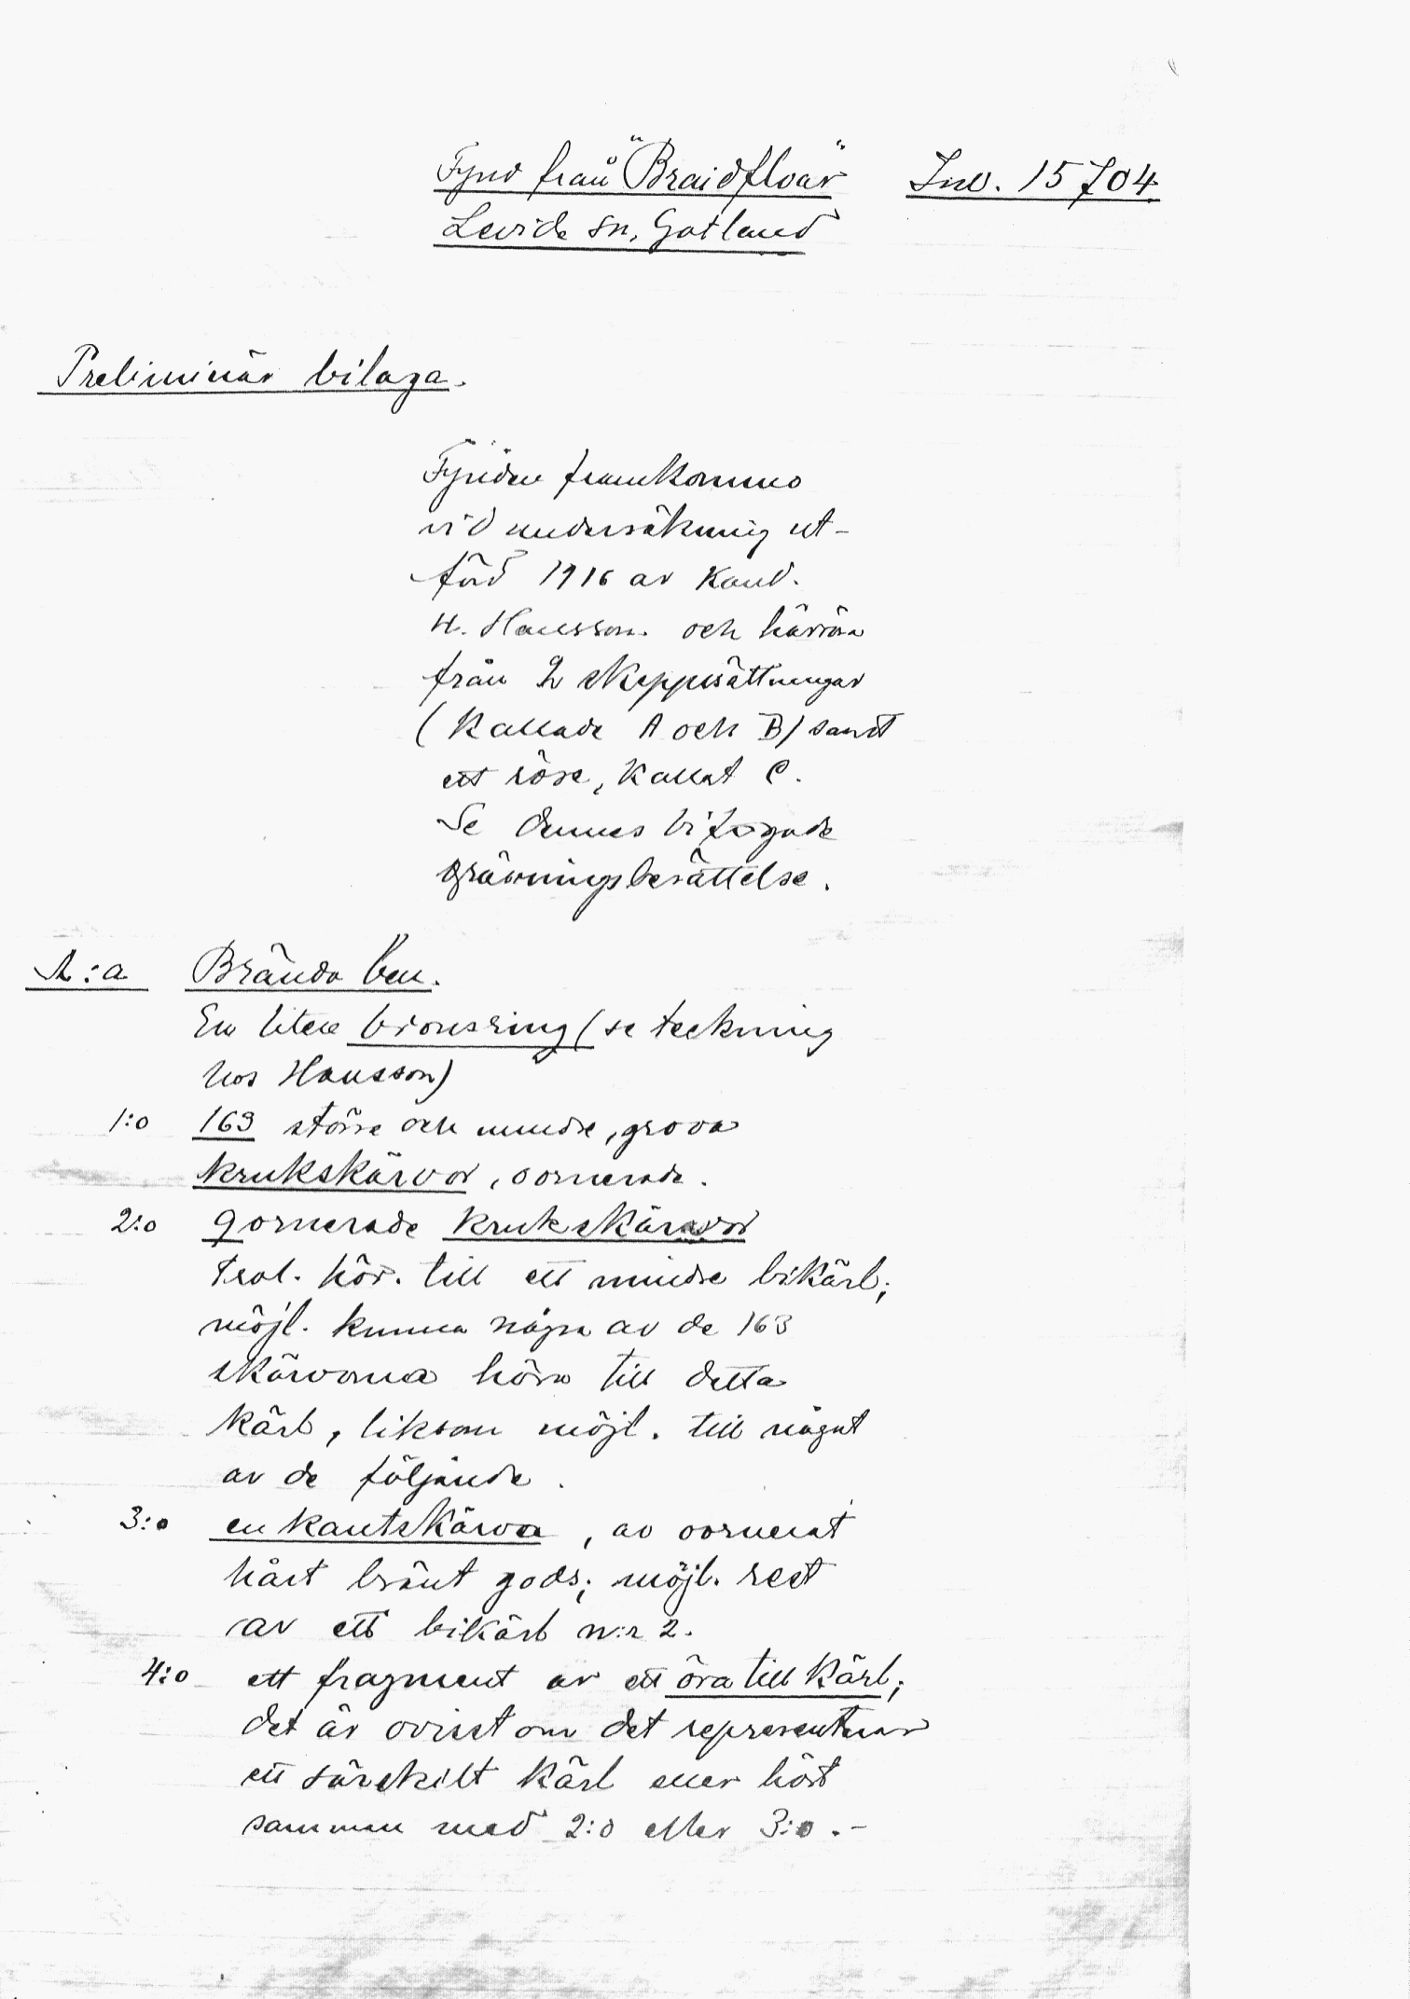 Fynd från "Braidfloar" Inv. 15704
Levide sn, Gotland
Preliminär bilaga.
Fynden framkommo
vid undersökning ut-
förd 1916 av Kand.
H. Hansson och härröra
från 2 skeppssättningar
(Kallade A och B) samt
ett röse, Kallat C.
Se dennes bifogade
grävningsberättelse.
A:a Brända ben.
En liten bronsring (se teckning
hos Hansson)
1:o 163 större och mindre, grova
krukskärvor, oornerade.
2:o 9 ornerade krukskärvor
trol. hör. till ett mindre bikärl;
möjl. kunna några av de 163
skärvorna höra till detta
kärl, liksom möjl. till något
av de följande.
3:o en kantskärva, av oornerat
hårt bränt gods; möjl. rest
av ett bikärl n:r 2.
4:o ett fragment av ett öra till kärl;
det är ovisst om det representerar
ett särskilt kärl eller hört
samman med 2:o eller 3:o.-